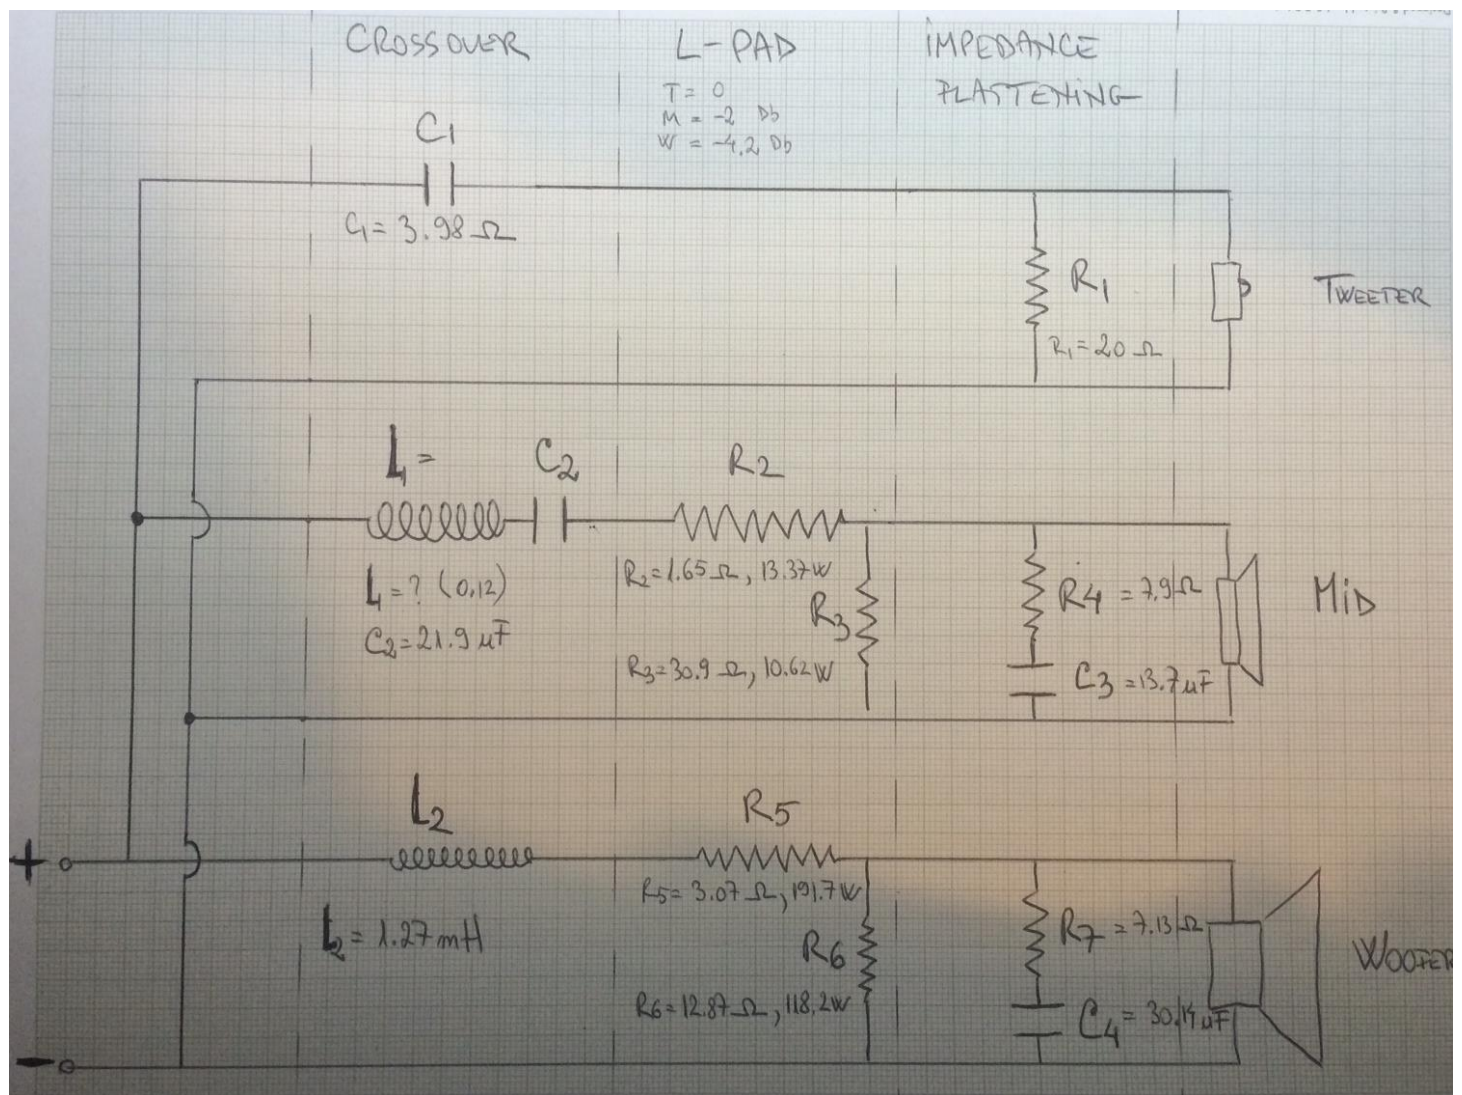 CROSSOVER
L-PAD
IMPEDANCE
FLATTENING
T= 0
M = -2 Db
W = -4,2 Db
C1
C1= 3.98 Ω
R1
R1= 20 Ω
TWEETER
L1=
C2
R2
L1=? (0,12)
C2=21.9 µF
R2=1.65 Ω, 13.37W
R3
R3=30.9 Ω, 10.62W
R4 = 7,9 Ω
C3 =13.7µF
MiD
L2
R5
L2= 1.27mH
R5= 3.07 Ω, 191.7W
R6
R6=12.87 Ω, 118,2W
R7 = 7,13 Ω
C4= 30,14 µF
WOOFER
+
-